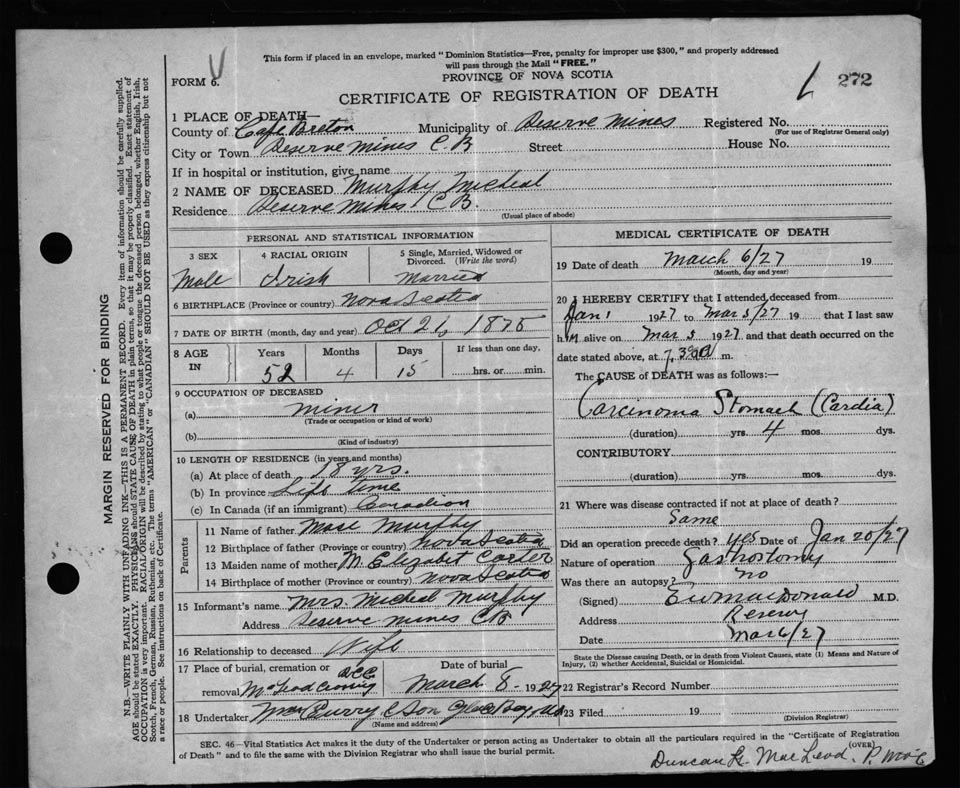 This form if placed in an envelope, marked "Dominion Statistics—Free, penalty for improper use $300," and properly addressed
will pass through the Mail "FREE."
FORM 6.
PROVINCE OF NOVA SCOTIA
CERTIFICATE OF REGISTRATION OF DEATH
272
1 PLACE OF DEATH—
County of Cape Breton Municipality of Reserve Mines Registered No.
(For use of Registrar General only)
City or Town Reserve Mines C B Street House No.
If in hospital or institution, give name
2 NAME OF DECEASED Murphy Micheal
Residence Reserve Mines C B.
(Usual place of abode)
PERSONAL AND STATISTICAL INFORMATION
3 SEX 4 RACIAL ORIGIN 5 Single, Married, Widowed or Divorced. (Write the word)
Male Irish Married
6 BIRTHPLACE (Province or country) Nova Scotia
7 DATE OF BIRTH (month, day and year) Oct 21, 1875
8 AGE IN Years Months Days If less than one day,
52 4 15 hrs. or min.
9 OCCUPATION OF DECEASED
(a) miner
(Trade or occupation or kind of work)
(b)
(Kind of industry)
10 LENGTH OF RESIDENCE (in years and months)
(a) At place of death 18 yrs.
(b) In province Life Time
(c) In Canada (if an immigrant) Canadian
Parents
11 Name of father Mose Murphy
12 Birthplace of father (Province or country) Nova Scotia
13 Maiden name of mother M. Elizabet
14 Birthplace of mother (Province or country) Nova Scotia
15 Informant's name Mrs Micheal Murphy
Address Reserve Mines CB
16 Relationship to deceased Wife
17 Place of burial, cremation or removal McLeod Crossing
Date of burial March 8. 1927
18 Undertaker Curry & Son Glace Bay NS
(Name and address)
MEDICAL CERTIFICATE OF DEATH
19 Date of death March 6/27 19
(Month, day and year)
20 I HEREBY CERTIFY that I attended deceased from
Jan 1 1927 to Mar 5/27 19 that I last saw
him alive on Mar 5 1927 and that death occurred on the
date stated above, at 7.30 a m.
The CAUSE of DEATH was as follows:—
Carcinoma Stomach (Cardia)
(duration) yrs. 4 mos. dys.
CONTRIBUTORY
(duration) yrs. mos. dys.
21 Where was disease contracted if not at place of death?
Same
Did an operation precede death? Yes Date of Jan 20/27
Nature of operation Gastrostomy
Was there an autopsy? no
(Signed) MacDonald M.D.
Address Reserve
Date Mar 6/27
State the Disease causing Death, or in death from Violent Causes, state (1) Means and Nature of
Injury, (2) whether Accidental, Suicidal or Homicidal.
22 Registrar's Record Number
23 Filed 19
(Division Registrar)
SEC. 46—Vital Statistics Act makes it the duty of the Undertaker or person acting as Undertaker to obtain all the particulars required in the "Certificate of Registration
of Death" and to file the same with the Division Registrar who shall issue the burial permit.
(OVER)
Duncan H. MacLeod.
MARGIN RESERVED FOR BINDING
N.B.—WRITE PLAINLY WITH UNFADING INK—THIS IS A PERMANENT RECORD. Every item of information should be carefully supplied.
AGE should be stated EXACTLY. PHYSICIANS should STATE CAUSE OF DEATH in plain terms, so that it may be properly classified. Exact statement of
OCCUPATION is very important. RACIAL ORIGIN will be described by stating to what people or tongue the deceased person belonged, whether English, Irish,
Scotch, French, German, Russian, Ruthenian, etc. The terms "AMERICAN" or "CANADIAN" SHOULD NOT BE USED as they express citizenship but not
a race or people. See instructions on back of Certificate.